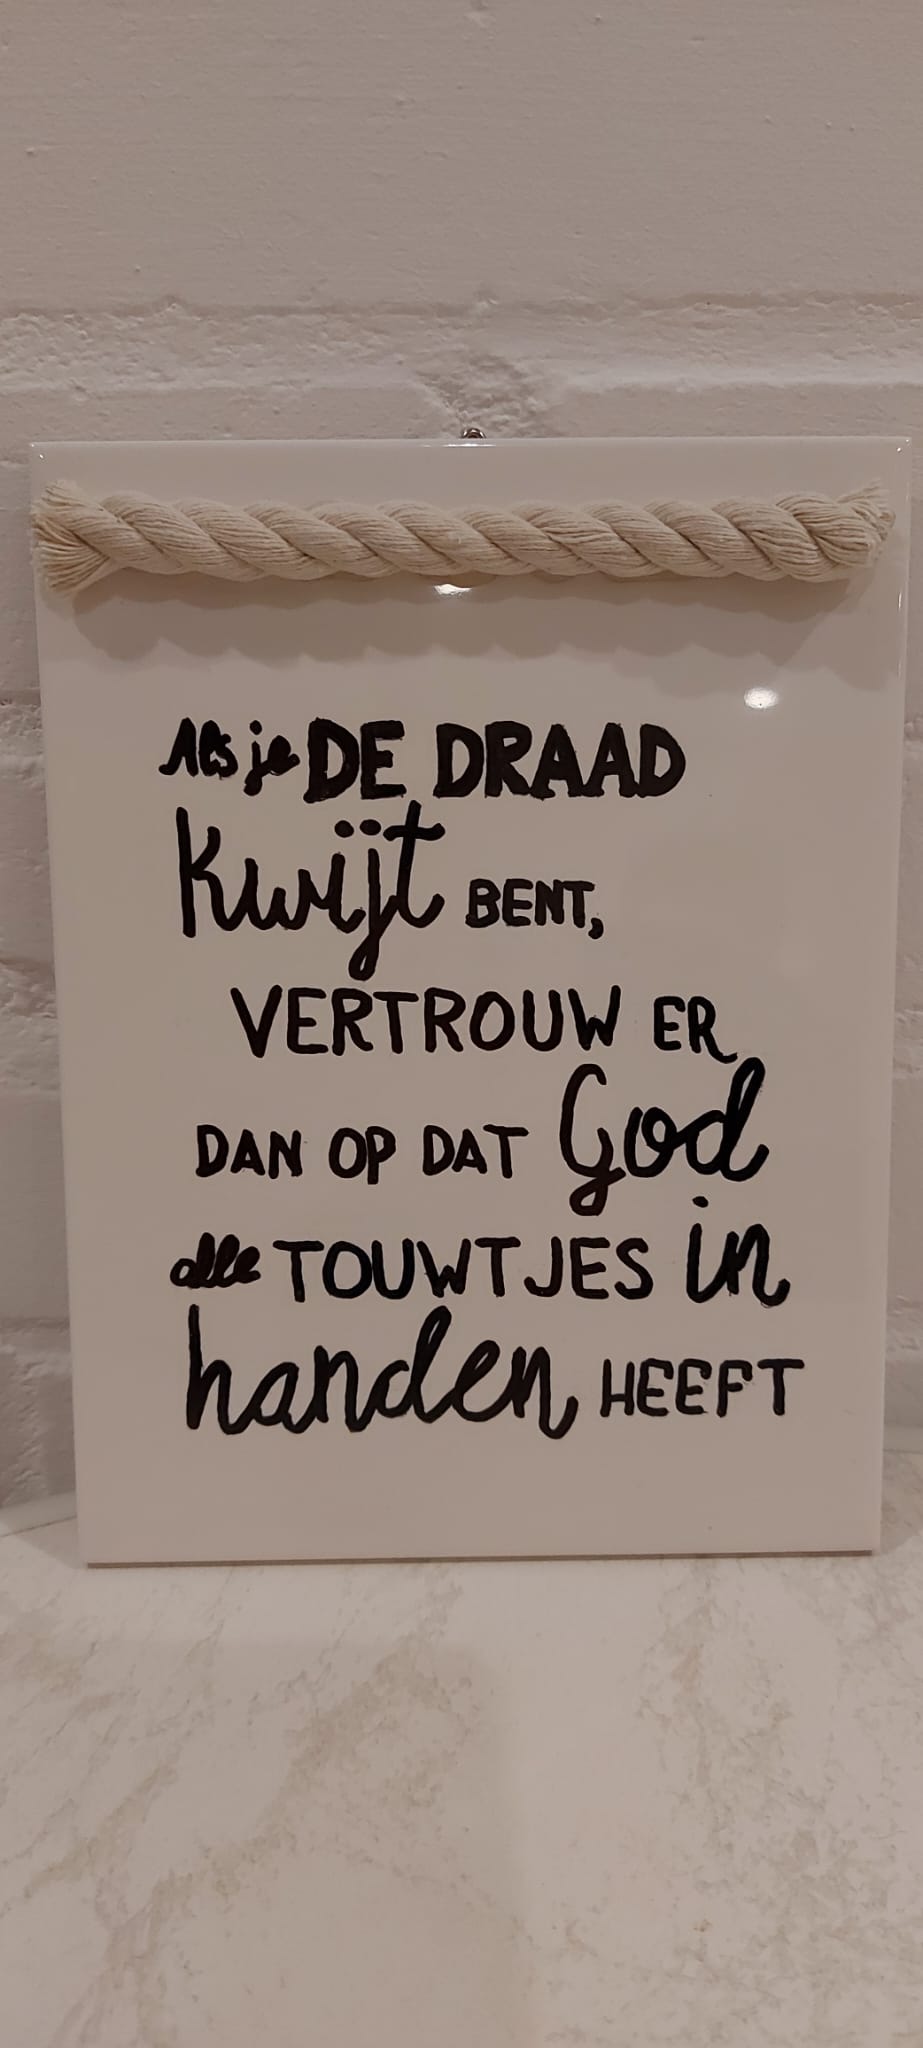 Als je DE DRAAD
kwijt BENT,
VERTROUW ER
DAN OP DAT God
alle TOUWTJES in
handen HEEFT